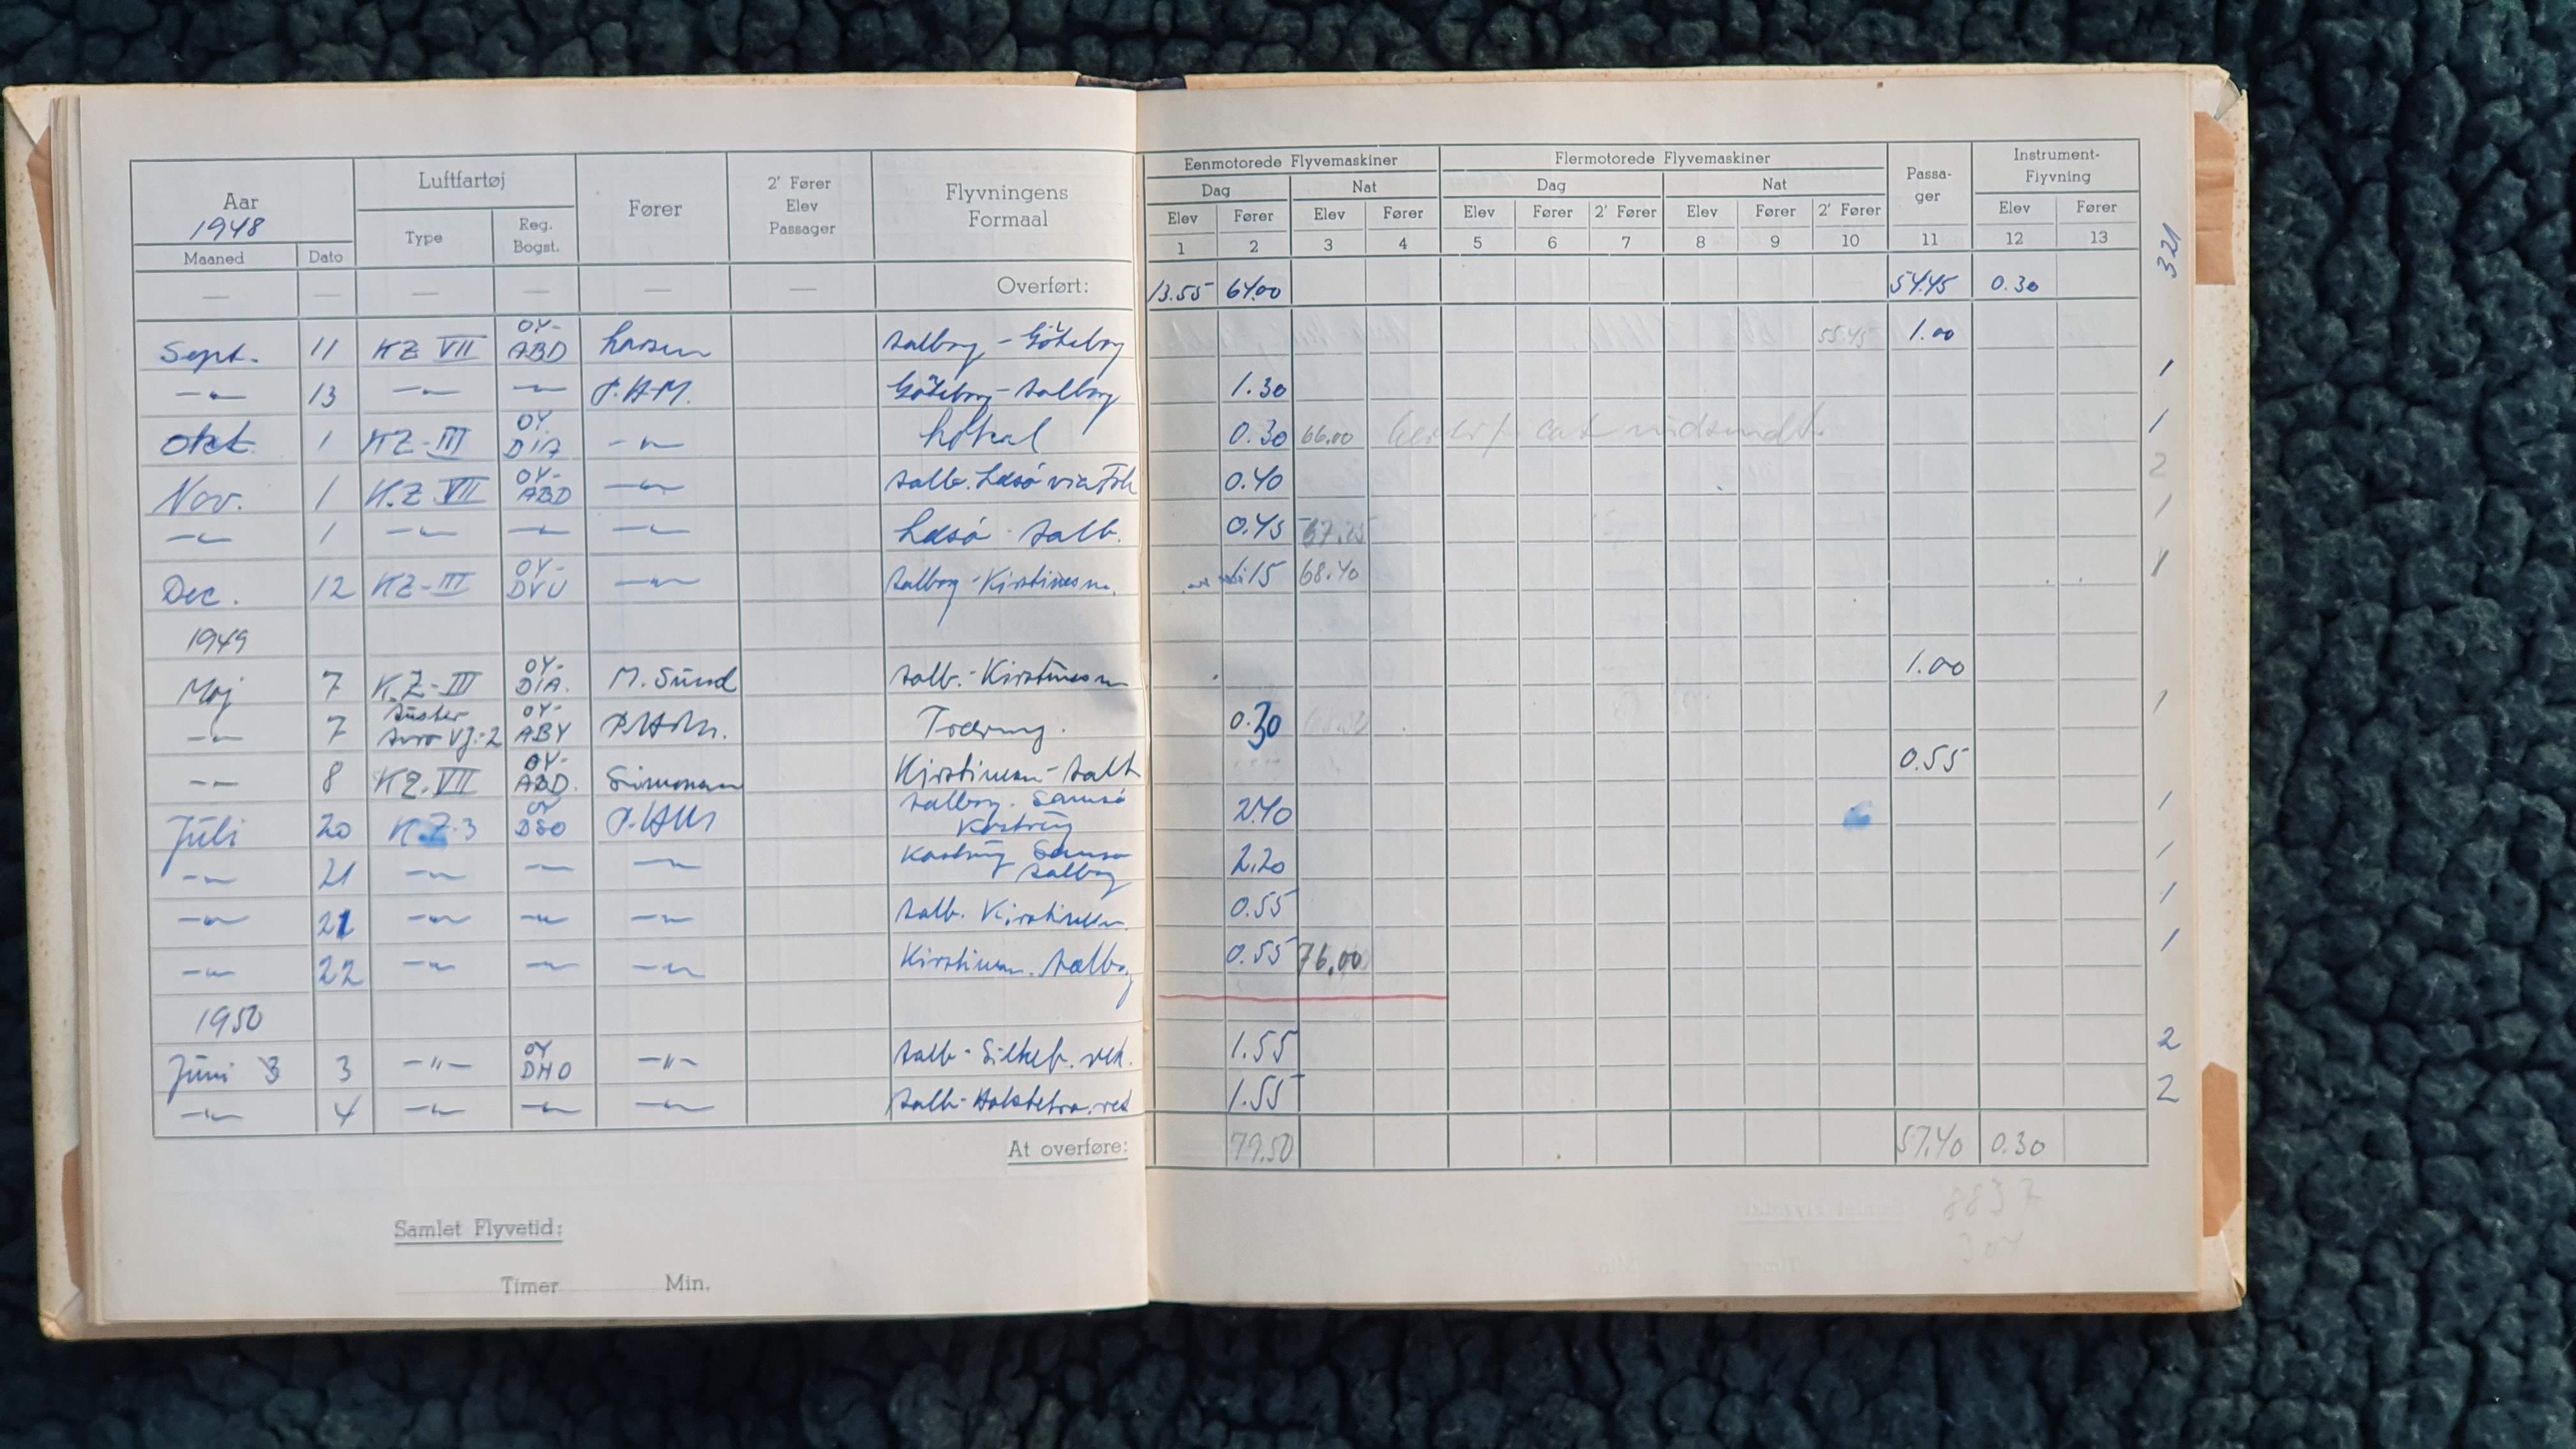 Aar
1948
Luftfartøj
Fører
2' Fører
Elev
Passager
Flyvningens
Formaal
Eenmotorede Flyvemaskiner
Flermotorede Flyvemaskiner
Passa-
ger
Instrument-
Flyvning
Dag
Nat
Dag
Nat
Type
Reg.
Bogst.
Elev
Fører
Elev
Fører
Elev
Fører
2' Fører
Elev
Fører
2' Fører
Elev
Fører
Maaned
Dato
1 2 3 4 5 6 7 8 9 10 11 12 13
321
Overført: 13.55 64.00 54.45 0.30
Sept. 11 KZ VII OY-ABD Larsen Aalborg - Göteborg 55.45 1.00
-"- 13 -"- -"- P.H.M. Göteborg - Aalborg 1.30 1
Okt. 1 KZ-III OY-DIA -"- Lokal 0.30 66.00 1
Nov. 1 K.Z. VII OY-ABD -"- Aalb. Læsø via 0.40 2
-"- 1 -"- -"- -"- Læsø - Aalb. 0.45 67.25 1
Dec. 12 KZ-III OY-DVU -"- Aalborg - Kirstinesm. 1.15 68.40 1
1949
Maj 7 K.Z-III OY-DIA. M. Sund Aalb. - Kirstinesm 1.00
-"- 7 Auster OY-ABY Træning. 0.30 1
-"- 8 KZ.VII OY-ABD. Simonsen Kirstinesm - Aalb 0.55
Juli 20 K.Z-3 OY DSO Aalborg. Samsø Kastrup 2.40 1
-"- 21 -"- -"- -"- Kastrup Samsø Aalborg 2.20 1
-"- 21 -"- -"- -"- Aalb. Kirstinesm. 0.55 1
-"- 22 -"- -"- -"- Kirstinesm. Aalborg 0.55 76.00 1
1950
Juni 3 3 -"- OY DHO -"- Aalb - Silkeb. ret. 1.55 2
-"- 4 -"- -"- -"- Aalb - Holstebro. ret 1.55 2
At overføre: 79.50 57.40 0.30
Samlet Flyvetid:
Timer Min.